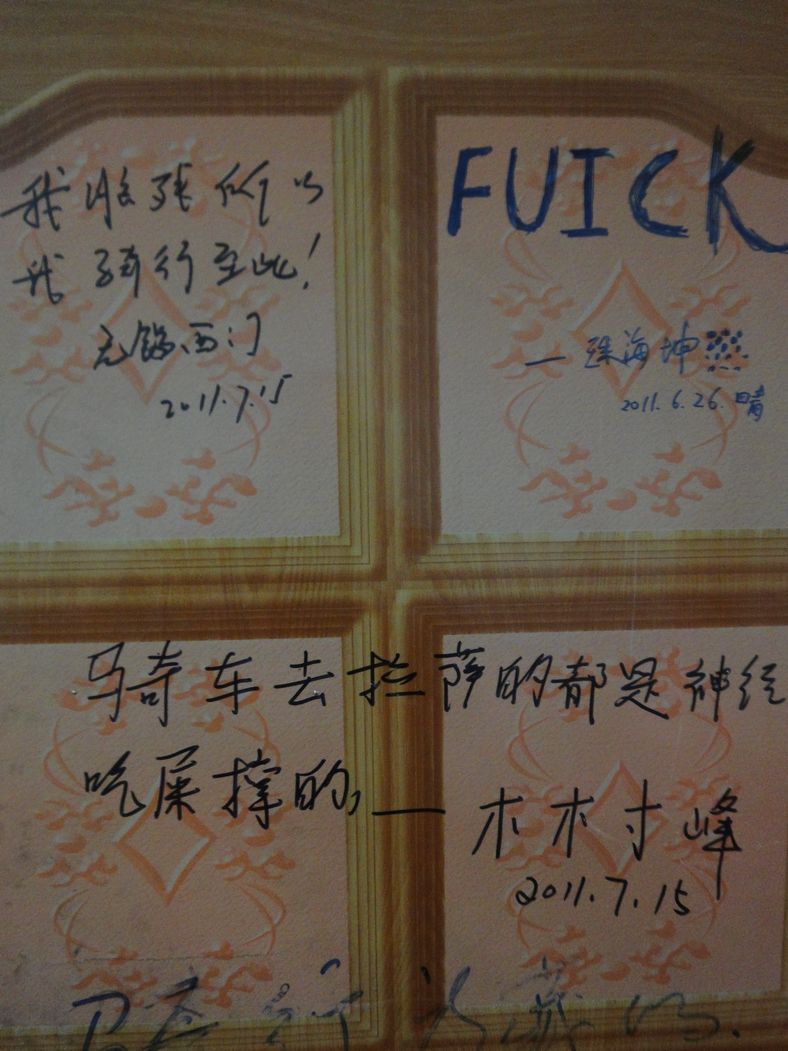 我张所以
我骑行至此!
无锡西门
2011.7.15
FUICK
—珠海坤
2011.6.26.晴
骑车去拉萨的都是神经
吃屎撑的,—木木寸峰
2011.7.15